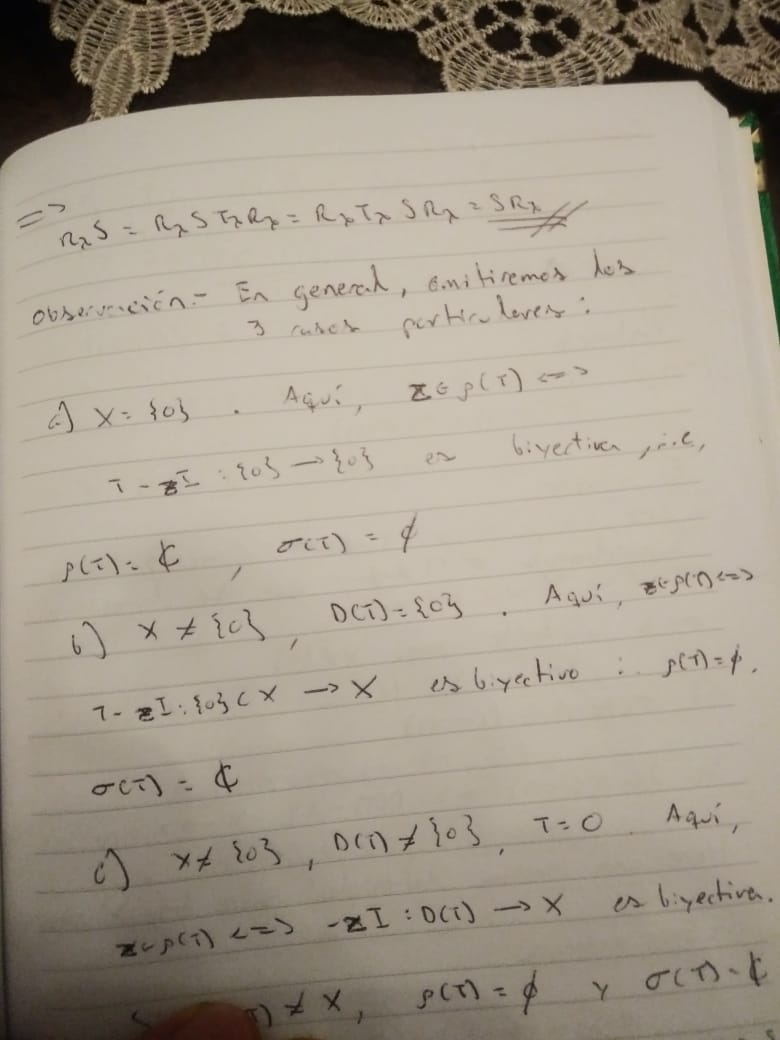 =>
RλS = RλS TλRλ = RλTλ SRλ = SRλ
Observación.- En general, omitiremos los
3 casos particulares:
a) X = {0} . Aquí, z∈ρ(T) <=>
T - zI : {0} → {0} es biyectiva, i.e,
ρ(T) = ₵ , σ(T) = ϕ
b) X ≠ {0} , D(T) = {0} . Aquí, z∈ρ(T) <=>
T - zI : {0} ⊂ X → X es biyectivo ∴ ρ(T) = ϕ.
σ(T) = ₵
c) X ≠ {0} , D(T) ≠ {0} , T = 0 . Aquí,
z∈ρ(T) <=> -zI : D(T) → X es biyectiva.
T) ≠ X , ρ(T) = ϕ y σ(T) = ₵